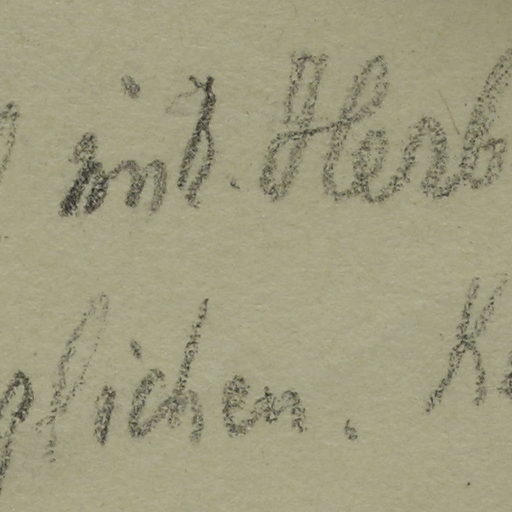 mit. Herb
glichen. K